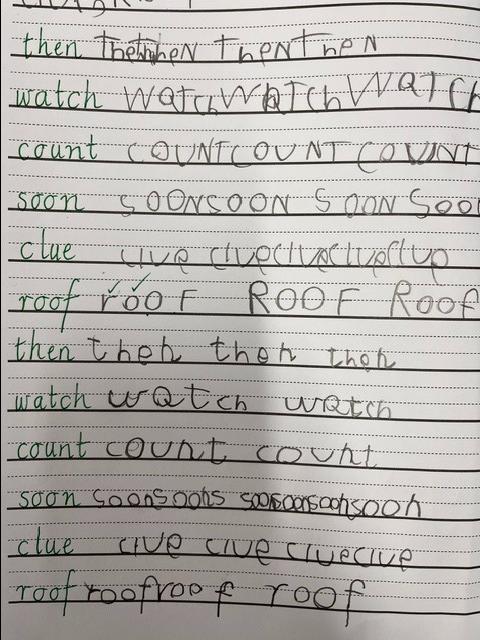 then ThenThen Then Then
watch WaTchWaTchWATCh
count COUNTCOUNT COUNT
soon SOONSOON SOON Soo
clue clue clueclueclueclup
roof rooF ROOF Roof
then then then then
watch watch watch
count count count
soon soonsoons soonsoonsoonsoon
clue clue clue clueclue
roof roofroof roof